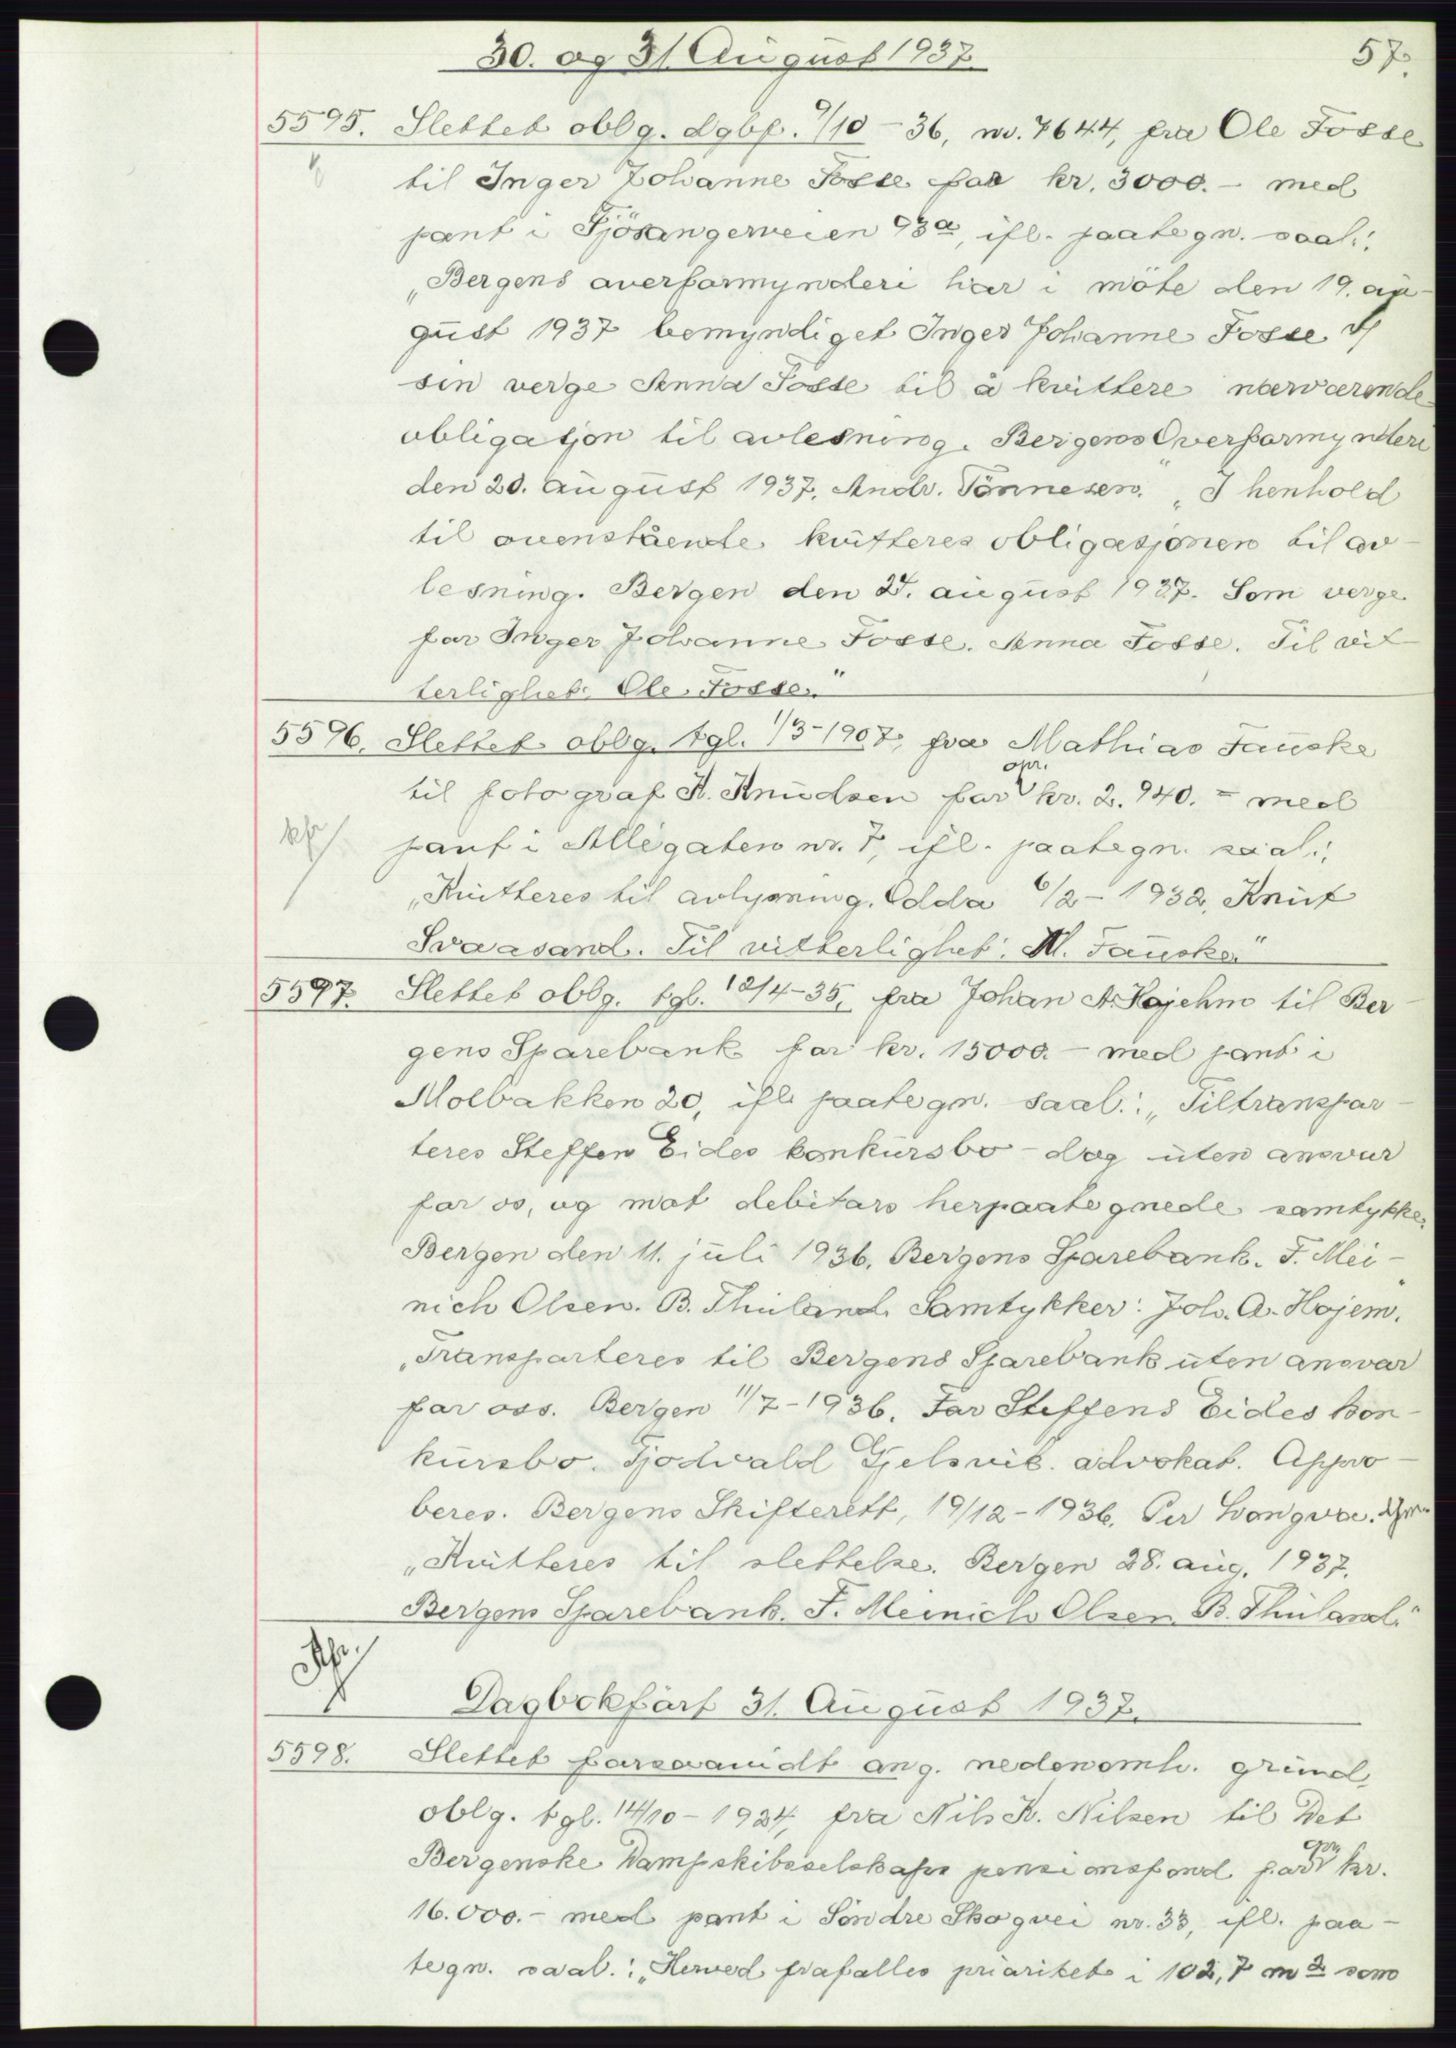 30. og 31 August 1937. 57.
5595. Slettet oblg. dgbf. 9/10 - 36, nr. 7644, fra Ole Fosse
til Inger Johanne Fosse for kr. 3000.- med
pant i Fjösangerveien 93a, ifl. paategn. saal.:
„Bergens overformynderi har i möte den 19. au-
gust 1937 bemyndiget Inger Johanne Fosse v/
sin verge Anna Fosse til å kvittere nærværende
obligasjon til avlesning. Bergens Overformynderi
den 20. august 1937. Andr. Tönnesen." „I henhold
til ovenstående kvitteres obligasjonen til av-
lesning. Bergen den 24. august 1937. Som verge
for Inger Johanne Fosse. Anna Fosse. Til vit-
terlighet: Ole Fosse."
5596. Slettet oblg. tgl. 1/3-1907, fra Mathias Fauske
til fotograf K. Knudsen for opr. kr. 2.940.- med
pant i Allégaten nr. 7, ifl. paategn. saal.:
„Kvitteres til avlysning. Odda 6/2 - 1932, Knut
Svaasand. Til vitterlighet: M. Fauske."
5597. Slettet oblg. tgl. 12/4-35, fra Johan A. Hojem til Ber-
gens Sparebank for kr. 15000.- med pant i
Molbakken 20, ifl. paategn. saal.: „Tiltranspor-
teres Steffen Eides konkursbo - dog uten ansvar
for os, og mot debitors herpaategnede samtykke.
Bergen den 11. juli 1936. Bergens Sparebank. F. Mei-
nich Olsen. B. Thuland. Samtykker: Joh. A. Hojem."
„Transporteres til Bergens Sparebank uten ansvar
for oss. Bergen 11/7-1936. For Steffens Eides kon-
kursbo. Tjodvald Gjelsvik. advokat. Appro-
beres. Bergens Skifterett, 19/12-1936. Per
„Kvitteres til slettelse. Bergen 28. aug. 1937.
Bergens Sparebank. F. Meinich Olsen. B. Thuland."
Dagbokfört 31. August 1937.
5598. Slettet forsaavidt ang. nedenomh. grund,
oblg. tgl. 14/10-1924, fra Nils K. Nilsen til Det
Bergenske Dampskibsselskaps pensionsfond for opr. kr.
16.000.- med pant i Söndre Skogvei nr. 33, ifl. paa-
tegn. saal.: „Herved frafalles prioritet i 102,7 m2 som